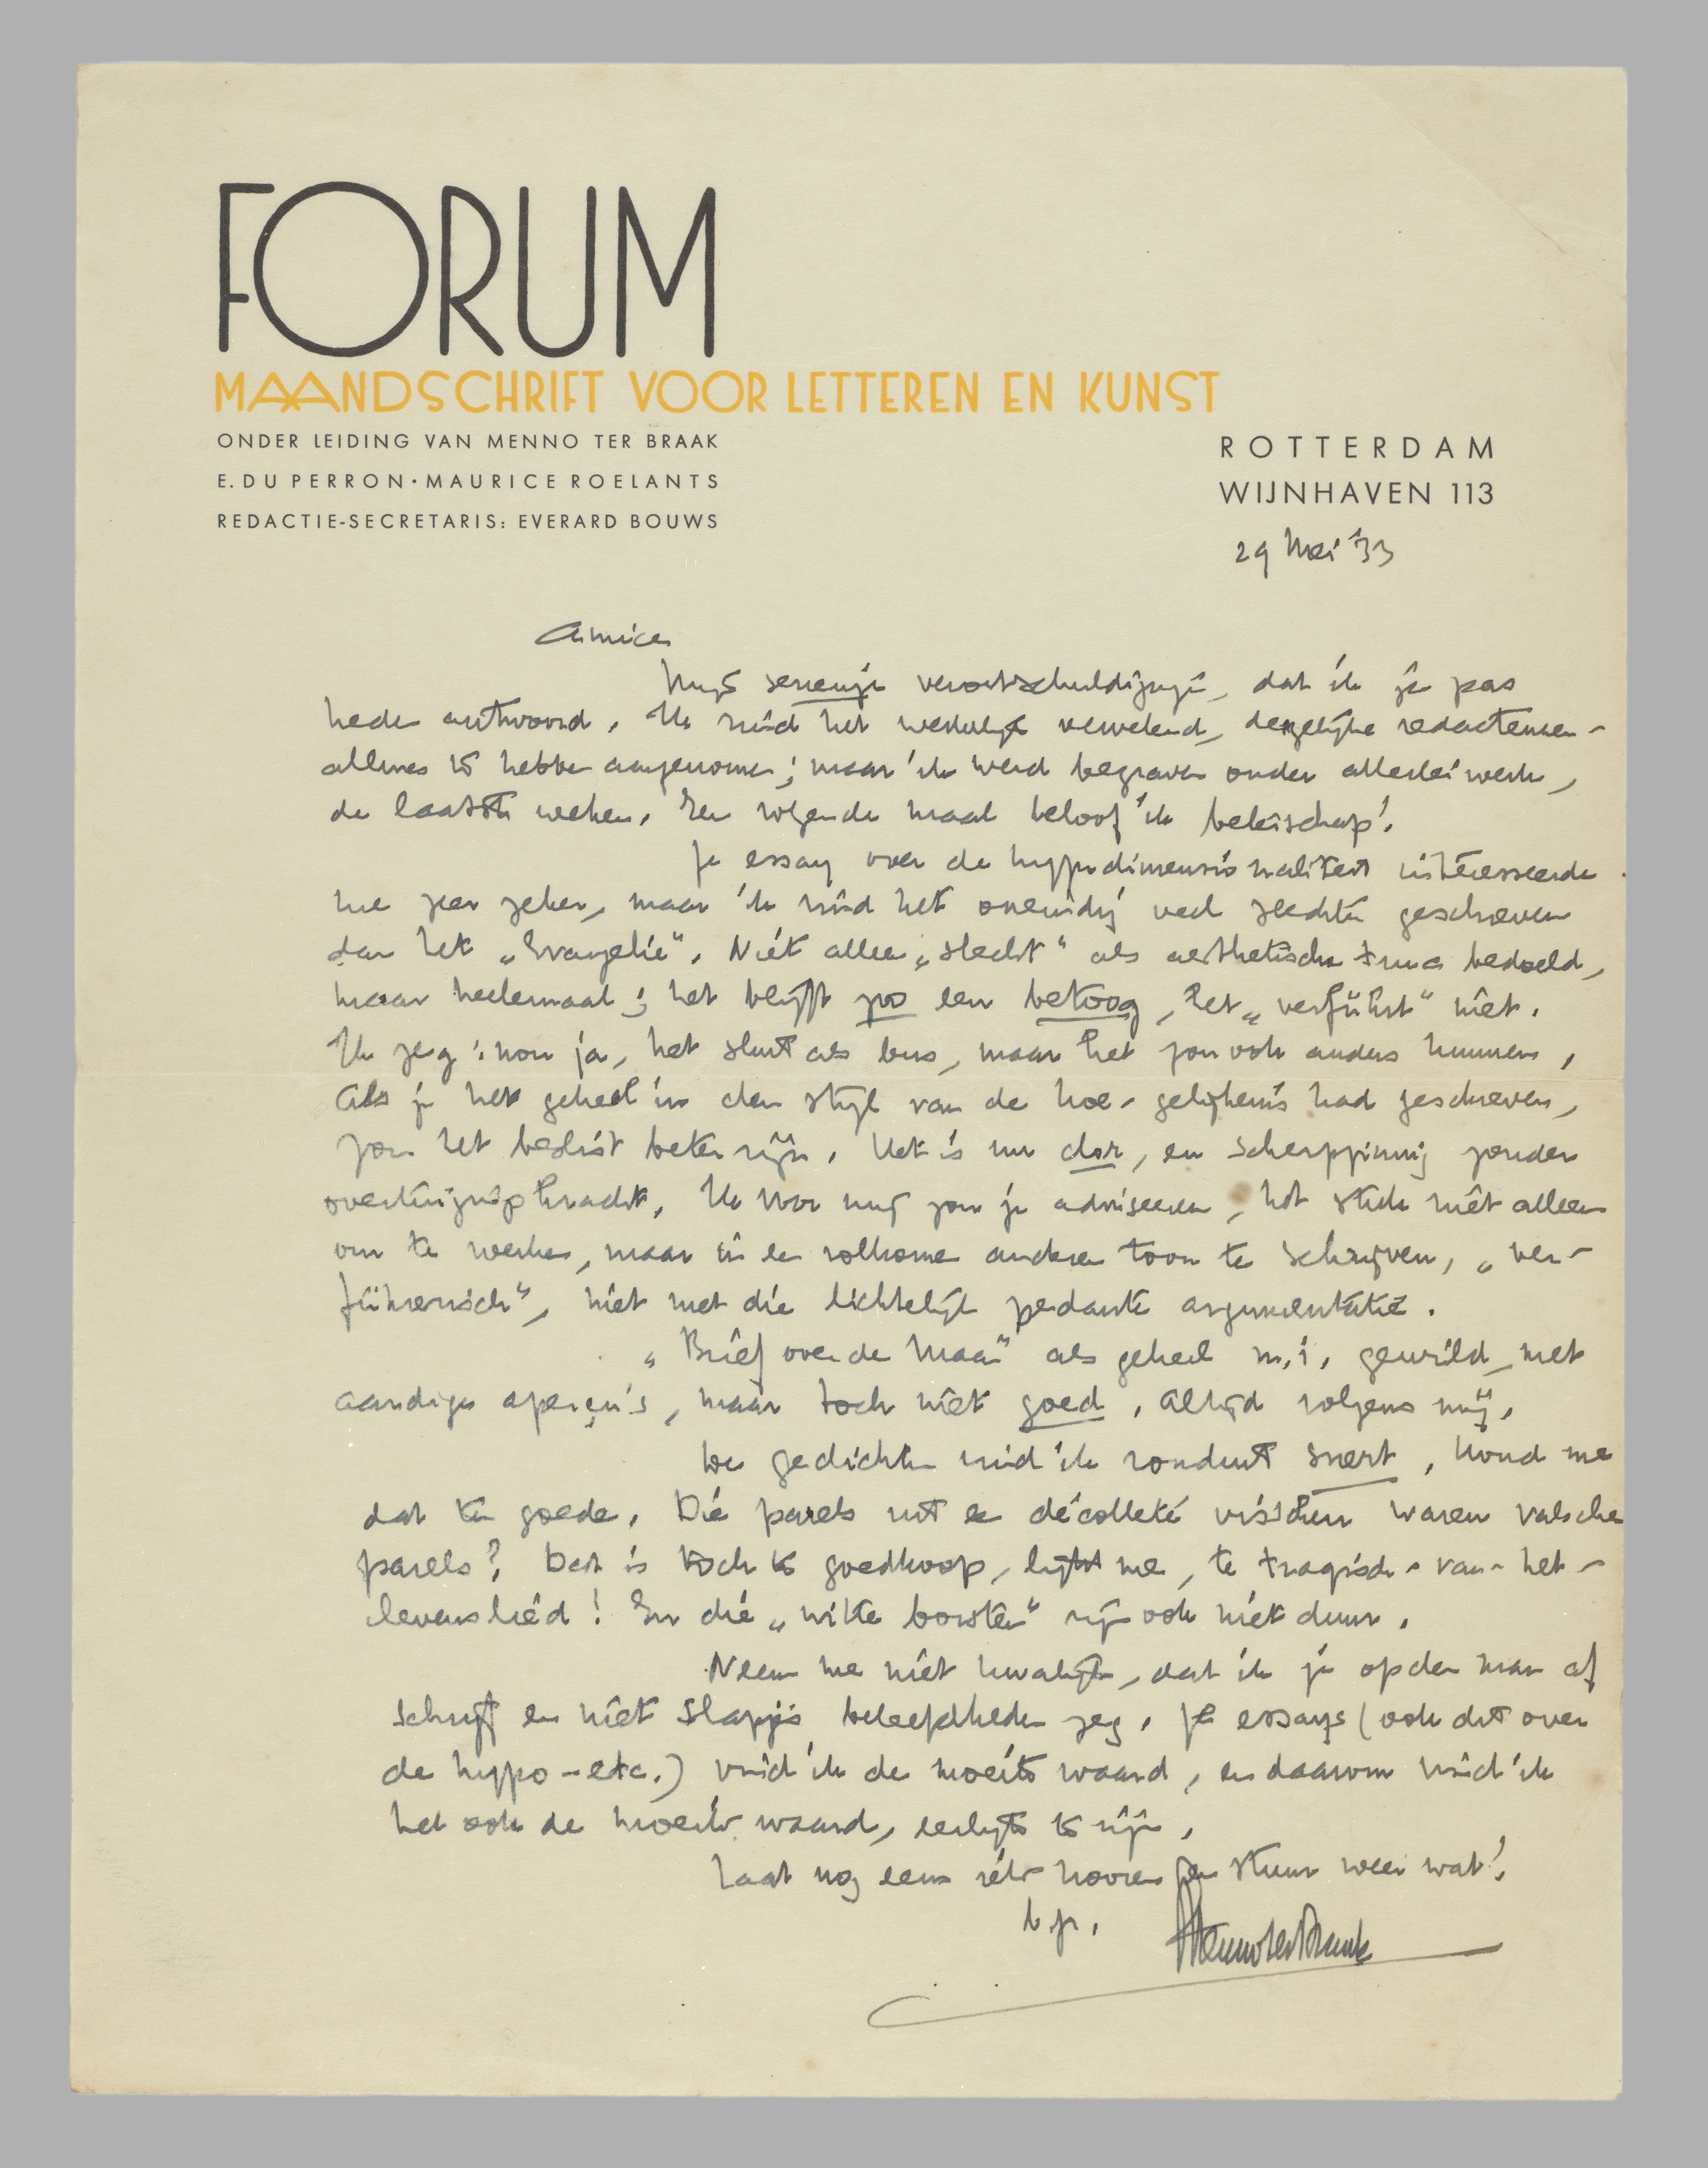 FORUM
MAANDSCHRIFT VOOR LETTEREN EN KUNST
ONDER LEIDING VAN MENNO TER BRAAK
E. DU PERRON · MAURICE ROELANTS
REDACTIE-SECRETARIS: EVERARD BOUWS
ROTTERDAM
WIJNHAVEN 113
29 Mei '33
Amice,
Mijn verontschuldigingen, dat ik je pas
heden antwoord. Ik vind het werkelijk vervelend, dergelijke redacteuren-
allures te hebben aangenomen; maar ik werd begraven onder allerlei werk,
de laatste weken. Een volgende maal beloof ik beterschap!
Je essay over de hypodimensionaliteit interesseerde
me zeer zeker, maar ik vind het oneindig veel slechter geschreven
dan het „Evangelie". Niet alleen „slecht" als aesthetische term bedoeld,
maar heelemaal; het blijft zoo een betoog, het „verführt" niet.
Ik zeg: nou ja, het sluit als bus, maar het zou ook anders kunnen.
Als je het geheel in den stijl van de hoe-gelijkenis had geschreven,
zou het beslist beter zijn. Het is nu dor, en scherpzinnig zonder
overtuigingskracht. Ik voor mij zou je adviseeren, het stuk niet alleen
om te werken, maar in een volkomen anderen toon te schrijven, „ver-
führerisch", niet met die lichtelijk pedante argumentatie.
„Brief over de Maan" als geheel m.i. gewild, met
aardige aperçu's, maar toch niet goed, altijd volgens mij.
De gedichten vind ik ronduit snert, houd me
dat ten goede. Die parels uit een décolleté visschen waren valsche
parels? Dat is toch te goedkoop, lijkt me, te tragisch-van-het-
levenslied! En die „witte borsten" zijn ook niet duur.
Neem me niet kwalijk, dat ik je op den man af
schrijf en niet slapjes beleefdheden zeg. Je essays (ook dit over
de hypo-etc.) vind ik de moeite waard, en daarom vind ik
het ook de moeite waard, eerlijk te zijn.
Laat nog eens iets hooren en stuur weer wat!
t.t.
Menno ter Braak